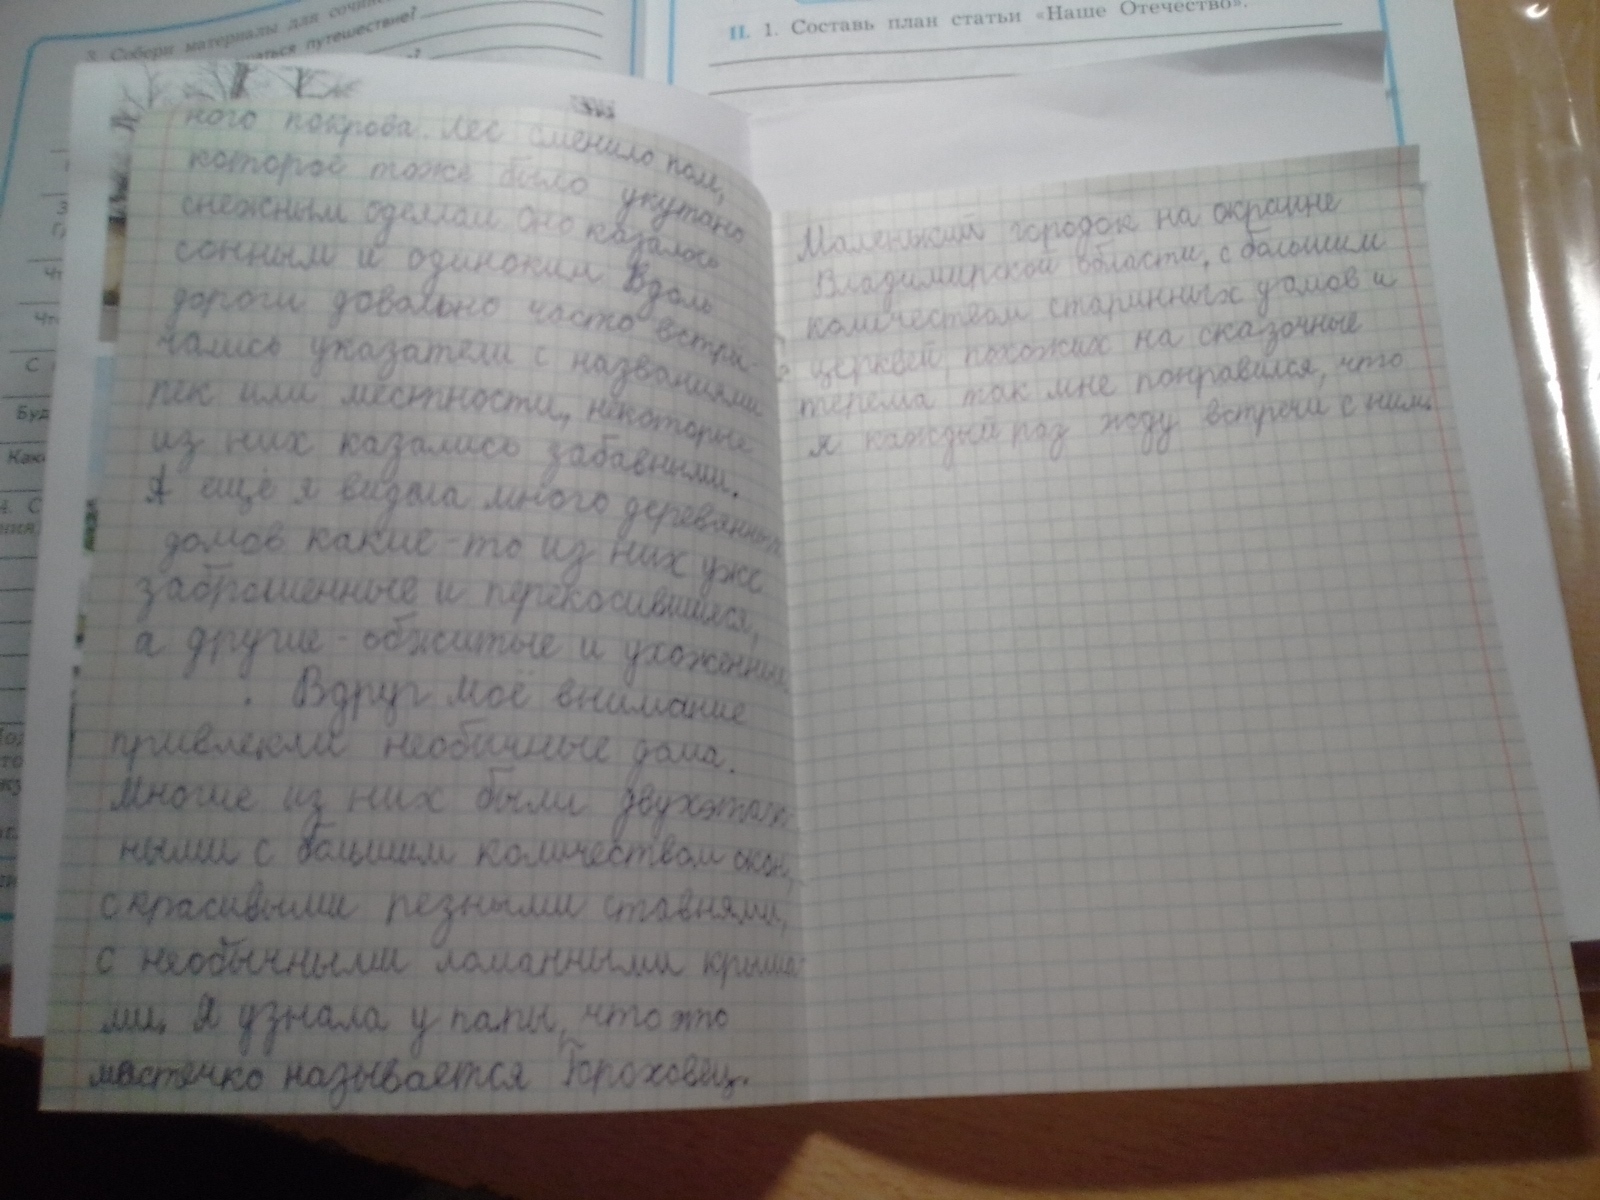 3. Собери материалы для сочине
аться путешествие?
II. 1. Составь план статьи «Наше Отечество».
ного покрова. Лес сменило поле,
которое тоже было укутано
снежным одеялом. Оно казалось
сонным и одиноким. Вдоль
дороги довольно часто встре-
чались указатели с названиями
рек или местности, некоторые
из них казались забавными.
А ещё я видела много деревянных
домов какие-то из них уже
заброшенные и перекосившиеся,
а другие - обжитые и ухоженные
. Вдруг моё внимание
привлекли необычные дома.
Многие из них были двухэтаж
ными с большим количеством окон,
с красивыми резными ставнями,
с необычными ломанными крыша
ми. Я узнала у папы, что это
местечко называется Гороховец.
Маленький городок на окраине
Владимирской области, с большим
количеством старинных домов и
церквей, похожих на сказочные
терема так мне понравился, что
я каждый раз жду встречи с ним.